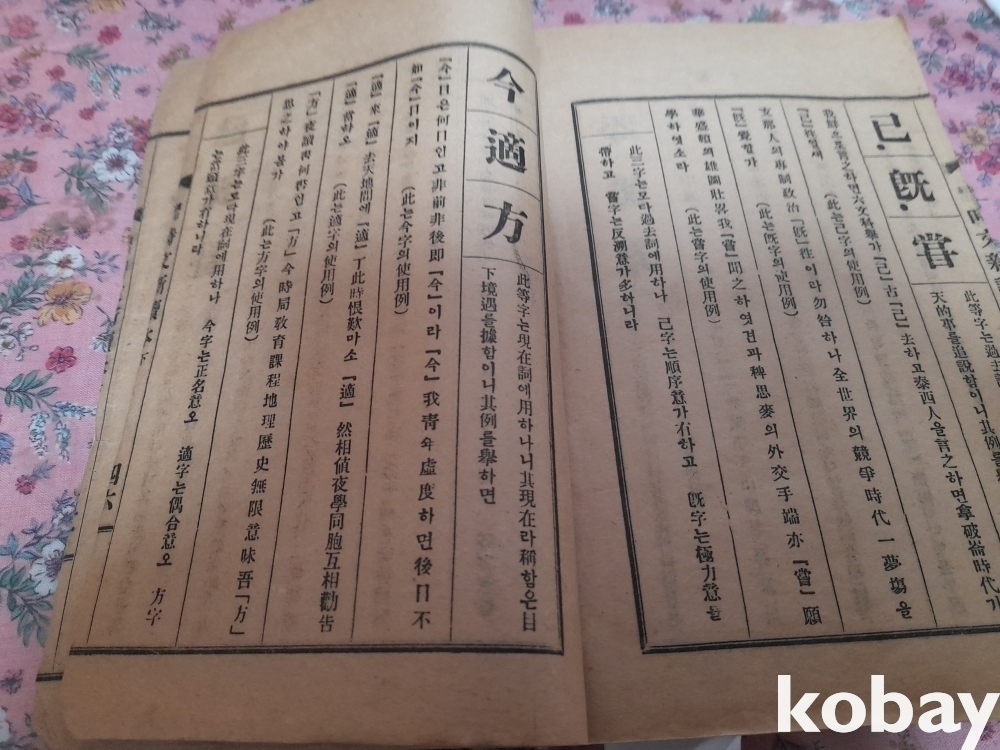 已 旣 甞
此等字는過去
天的事를追說함이니其例를
音辭으로言之하면六文材藝가『已』古『已』去하고泰西人을言之하면拿破崙時代가
『已』往일새
(此는已字의使用例)
文那人의專制政治『旣』往이라勿咎하나全世界의競爭時代一夢塲을
『旣』覺할가
(此는旣字의使用例)
華盛頓의雄圖壯畧我『甞』聞之하엿건과稗思麥의外交手端亦『甞』願
學하엿소라
(此는甞字의使用例)
此三字는모다過去詞에用하나 已字는順序意가有하고 旣字는極力意를
帶하고 甞字는反溯意가多하니라
今 適 方
此等字는現在詞에用하나니其現在라稱함은目
下境遇를據함이니其例를擧하면
『今』日은何日인고非前非後即『今』이라『今』我靑年虛度하면後日不
如『今』日이지
(此는今字의使用例)
『適』來『適』去天地間에『適』丁此時恨歎마소『適』然相値夜學同胞互相勸告
『適』當하오
(此는適字의使用例)
『方』夜讀書何冊인고『方』今時局敎育課程地理歷史無限意味吾『方』
思之하야볼가
(此는方字의使用例)
此三字는모다現在詞에用하나 今字는正名意오 適字는偶合意오 方字
는當願意가有하니라
四六
kobay